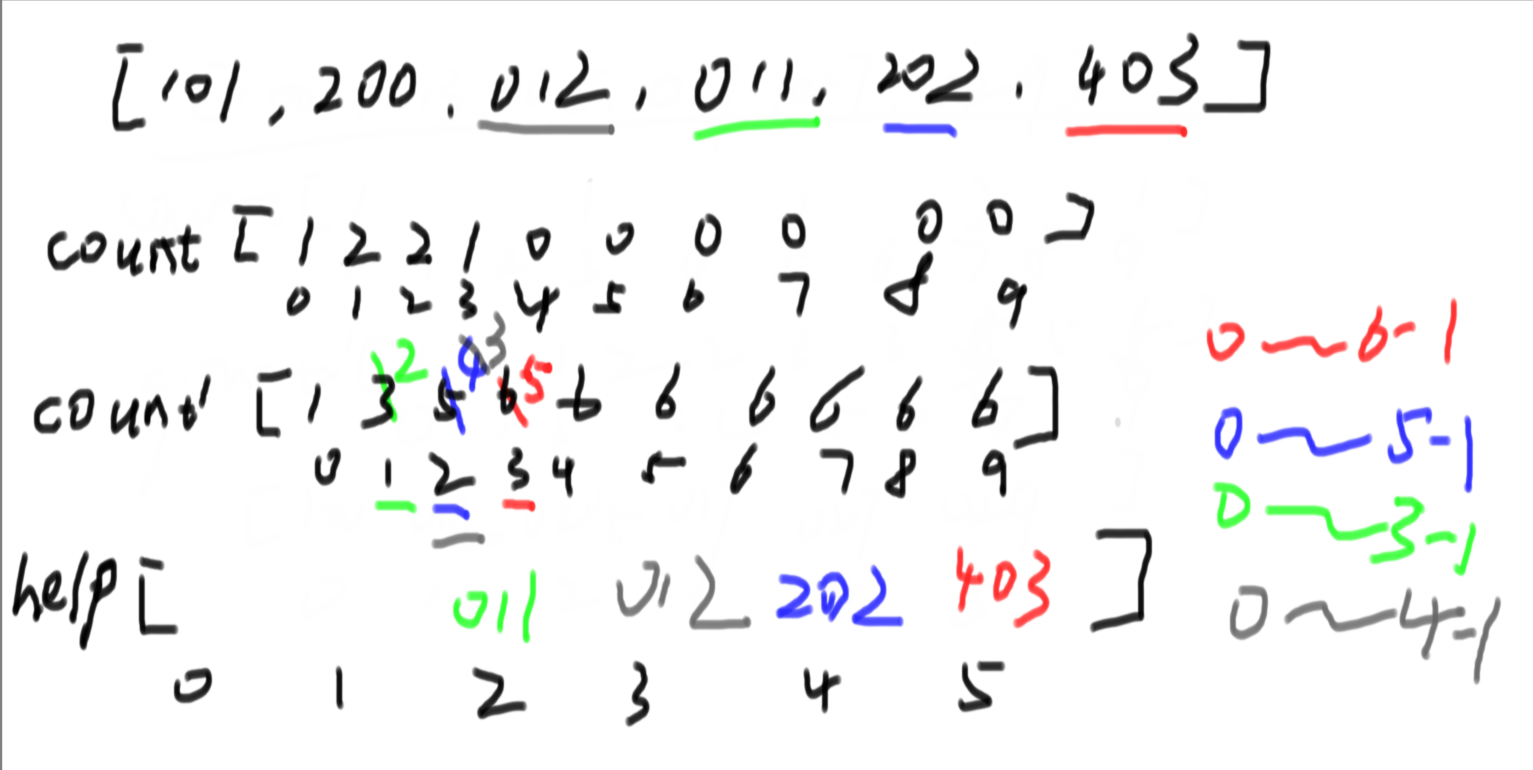 [101, 200. 012, 011, 202, 403]
count [1 2 2 1 0 0 0 0 0 0]
0 1 2 3 4 5 6 7 8 9
2 4 3 5
count' [1 3 5 6 6 6 6 6 6 6]
0 1 2 3 4 5 6 7 8 9
help [011 012 202 403]
0 1 2 3 4 5
0~6-1
0~5-1
0~3-1
0~4-1